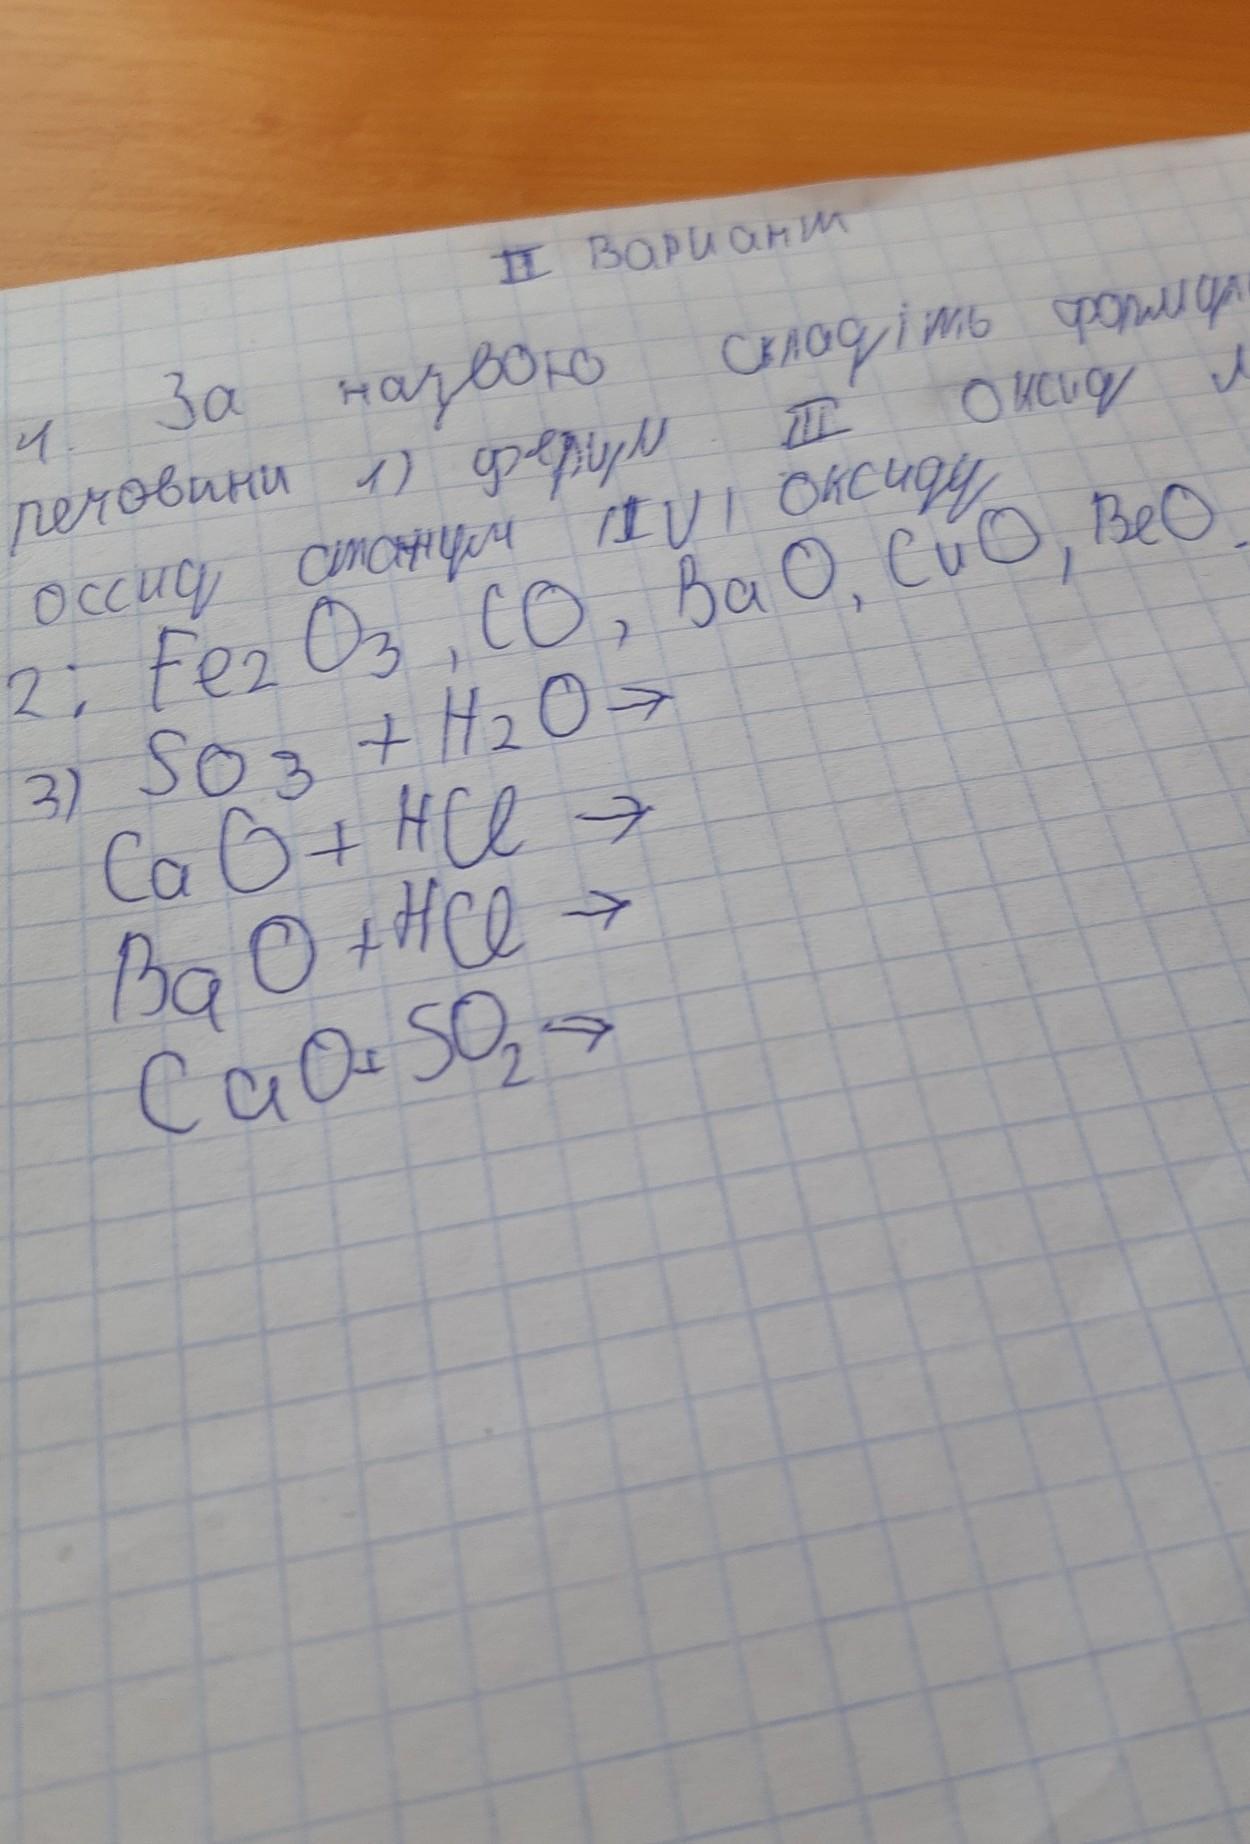 II Вариант
1. За назвою складіть формули
речовини 1) ферум III оксид
оссид станум (IV) оксиду
2: Fe2O3, CO, BaO, CuO, BeO.
3) SO3 + H2O →
CaO + HCl →
BaO + HCl →
CaO + SO2 →